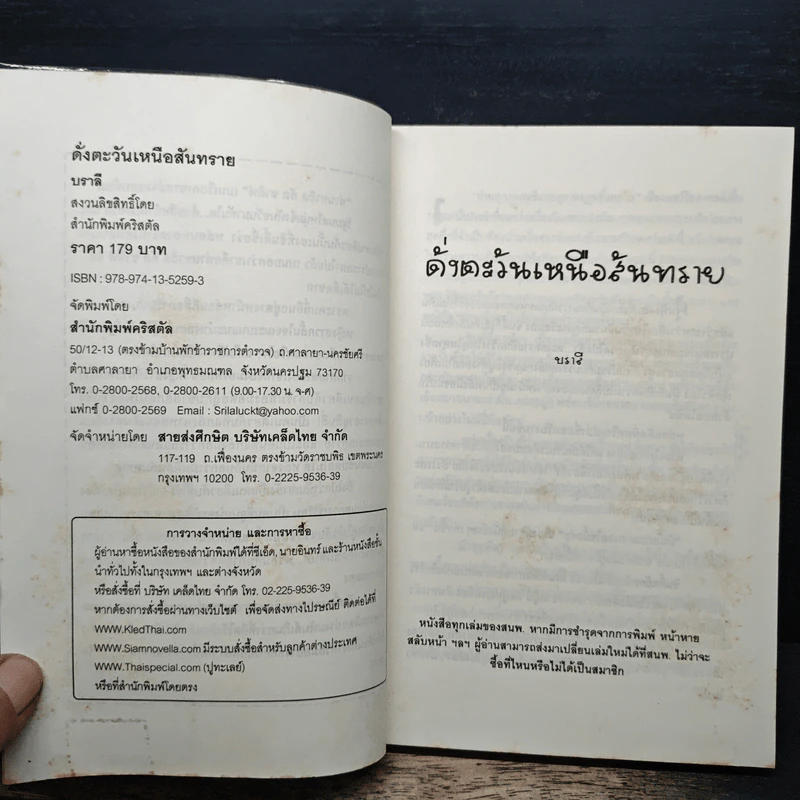 ดั่งตะวันเหนือสันทราย
บราลี
สงวนลิขสิทธิ์โดย
สำนักพิมพ์คริสตัล
ราคา 179 บาท
ISBN : 978-974-13-5259-3
จัดพิมพ์โดย
สำนักพิมพ์คริสตัล
50/12-13 (ตรงข้ามบ้านพักข้าราชการตำรวจ) ถ.ศาลายา-นครชัยศรี
ตำบลศาลายา อำเภอพุทธมณฑล จังหวัดนครปฐม 73170
โทร. 0-2800-2568, 0-2800-2611 (9.00-17.30 น. จ-ศ)
แฟกซ์ 0-2800-2569 Email : Srilaluckt@yahoo.com
จัดจำหน่ายโดย สายส่งศึกษิต บริษัทเคล็ดไทย จำกัด
117-119 ถ.เฟื่องนคร ตรงข้ามวัดราชบพิธ เขตพระนคร
กรุงเทพฯ 10200 โทร. 0-2225-9536-39
การวางจำหน่าย และการหาซื้อ
ผู้อ่านหาซื้อหนังสือของสำนักพิมพ์ได้ที่ซีเอ็ด, นายอินทร์ และร้านหนังสือชั้น
นำทั่วไปทั้งในกรุงเทพฯ และต่างจังหวัด
หรือสั่งซื้อที่ บริษัท เคล็ดไทย จำกัด โทร. 02-225-9536-39
หากต้องการสั่งซื้อผ่านทางเว็บไซต์ เพื่อจัดส่งทางไปรษณีย์ ติดต่อได้ที่
WWW.KledThai.com
WWW.Siamnovella.com มีระบบสั่งซื้อสำหรับลูกค้าต่างประเทศ
WWW.Thaispecial.com (ปูทะเลย์)
หรือที่สำนักพิมพ์โดยตรง
ดั่งตะวันเหนือสันทราย
บราลี
หนังสือทุกเล่มของสนพ. หากมีการชำรุดจากการพิมพ์ หน้าหาย
สลับหน้า ฯลฯ ผู้อ่านสามารถส่งมาเปลี่ยนเล่มใหม่ได้ที่สนพ. ไม่ว่าจะ
ซื้อที่ไหนหรือไม่ได้เป็นสมาชิก